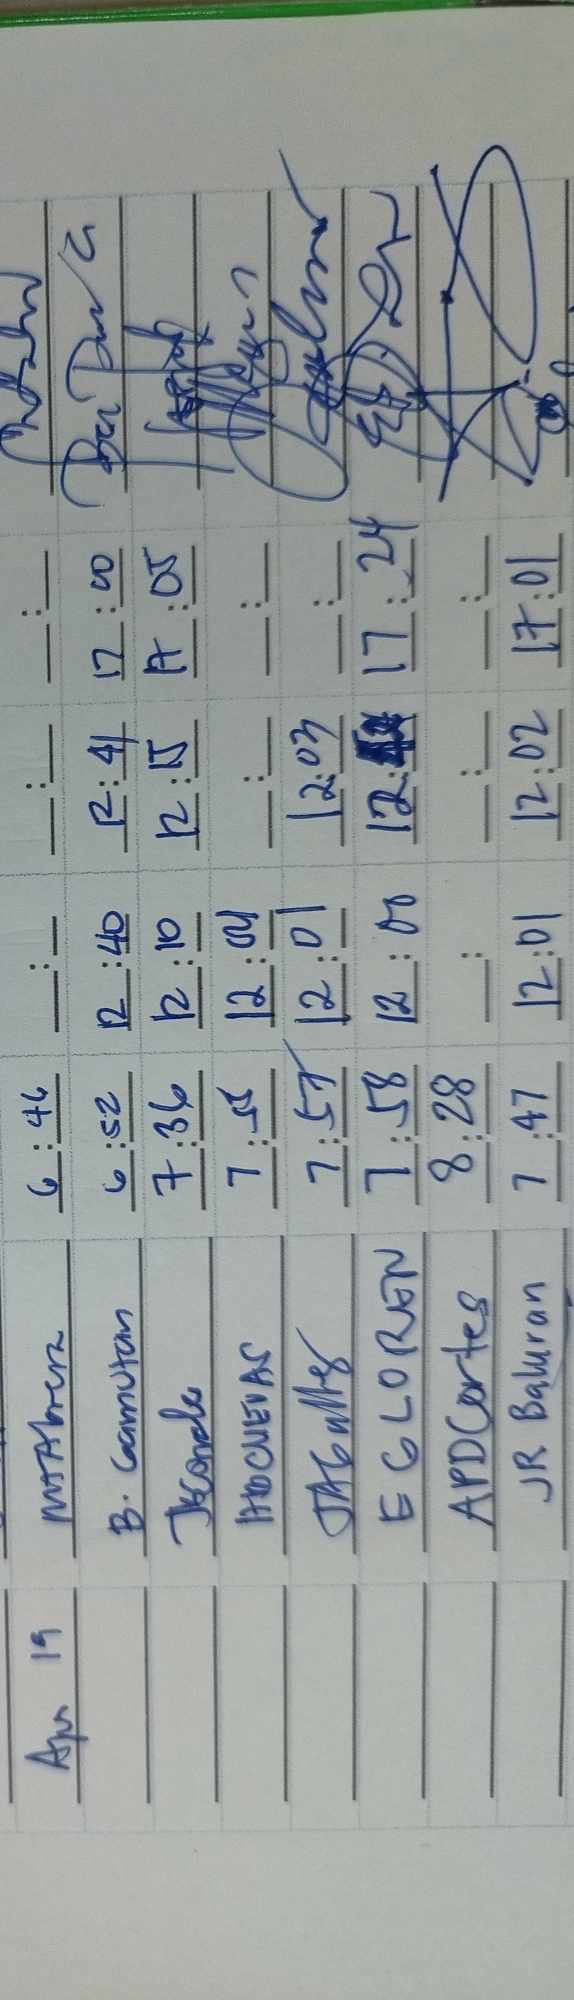 Apr 19 6:46 __:__ __:__ __:__
B. Camutan 6:52 12:40 12:41 17:00
7:36 12:10 12:15 17:05
HDCUEVAS 7:55 12:04 __:__ __:__
7:57 12:01 12:03 __:__
EGLOREN 7:58 12:00 12: 17:24
APDCortes 8:28 __:__ __:__ __:__
JR Baluran 7:47 12:01 12:02 17:01